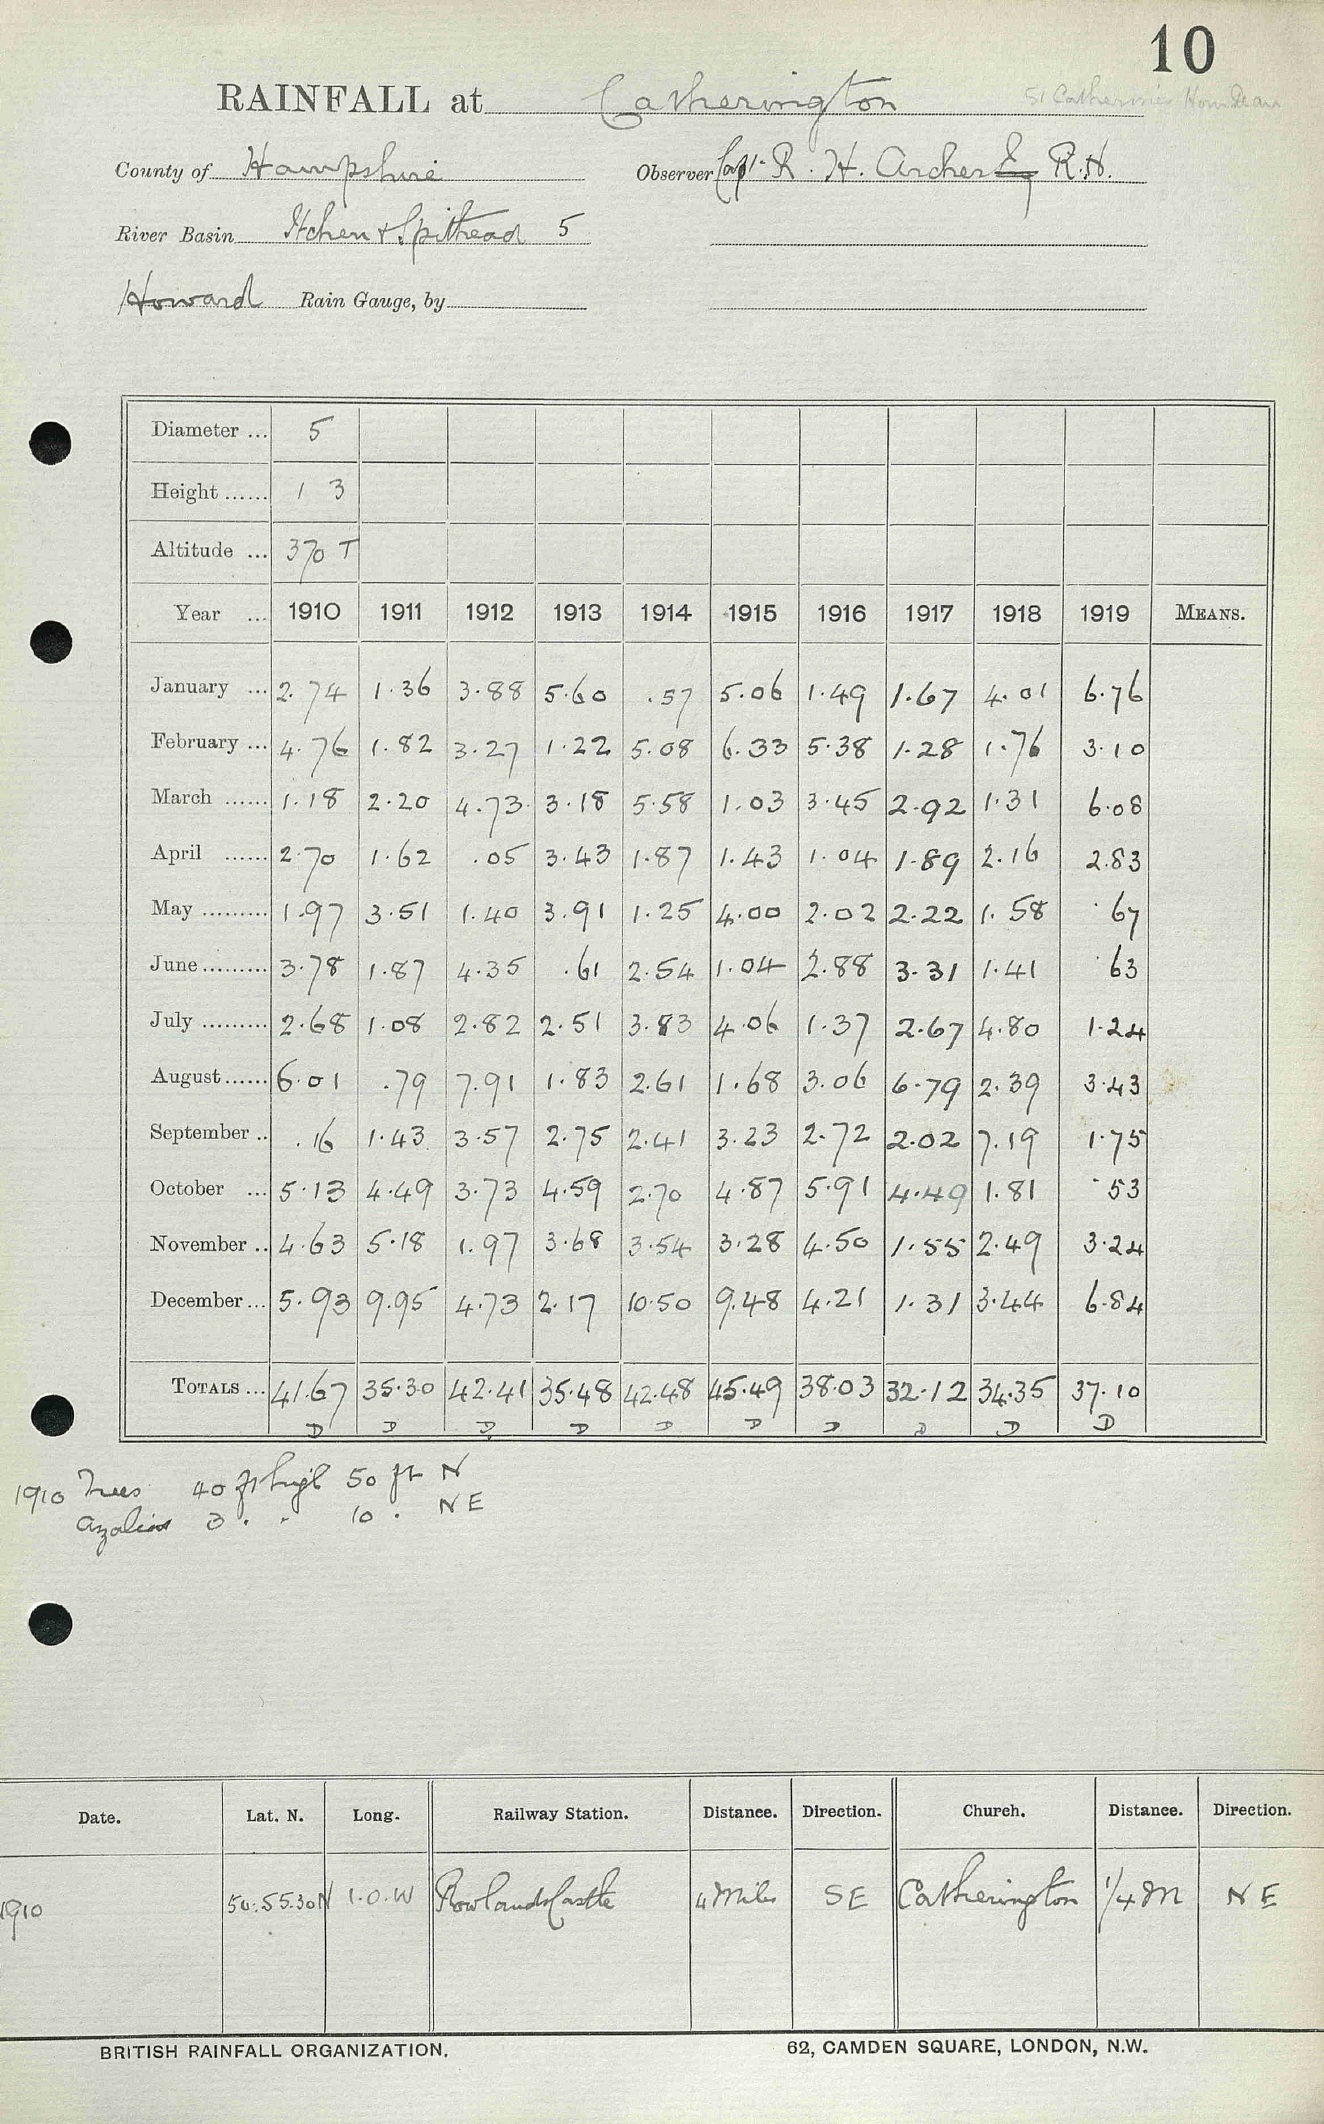 10
RAINFALL at Catherington
St Catherines Horndean
County of Hampshire Observer Capt. R. H. Archer Esq R.N.
River Basin Itchen & Spithead 5
Howard Rain Gauge, by
Diameter ... 5
Height ...... 1 3
Altitude ... 370 T
Year ... 1910 1911 1912 1913 1914 1915 1916 1917 1918 1919 MEANS.
January ... 2.74 1.36 3.88 5.60 .57 5.06 1.49 1.67 4.01 6.76
February ... 4.76 1.82 3.27 1.22 5.08 6.33 5.38 1.28 1.76 3.10
March ...... 1.18 2.20 4.73 3.18 5.58 1.03 3.45 2.92 1.31 6.08
April ...... 2.70 1.62 .05 3.43 1.87 1.43 1.04 1.89 2.16 2.83
May ......... 1.97 3.51 1.40 3.91 1.25 4.00 2.02 2.22 1.58 .67
June ......... 3.78 1.87 4.35 .61 2.54 1.04 2.88 3.31 1.41 .63
July ......... 2.68 1.08 2.82 2.51 3.83 4.06 1.37 2.67 4.80 1.24
August ...... 6.01 .79 7.91 1.83 2.61 1.68 3.06 6.79 2.39 3.43
September .. .16 1.43 3.57 2.75 2.41 3.23 2.72 2.02 7.19 1.75
October ... 5.13 4.49 3.73 4.59 2.70 4.87 5.91 4.49 1.81 .53
November .. 4.63 5.18 1.97 3.68 3.54 3.28 4.50 1.55 2.49 3.24
December ... 5.93 9.95 4.73 2.17 10.50 9.48 4.21 1.31 3.44 6.84
TOTALS ... 41.67 35.30 42.41 35.48 42.48 45.49 38.03 32.12 34.35 37.10
D D D D D D D D D D
1910 Trees 40 ft high 50 ft N
Azalias 3 " " 10 " NE
Date. Lat. N. Long. Railway Station. Distance. Direction. Church. Distance. Direction.
1910 50.55.30N 1.0.W Rowlands Castle 4 Miles SE Catherington 1/4 M NE
BRITISH RAINFALL ORGANIZATION. 62, CAMDEN SQUARE, LONDON, N.W.